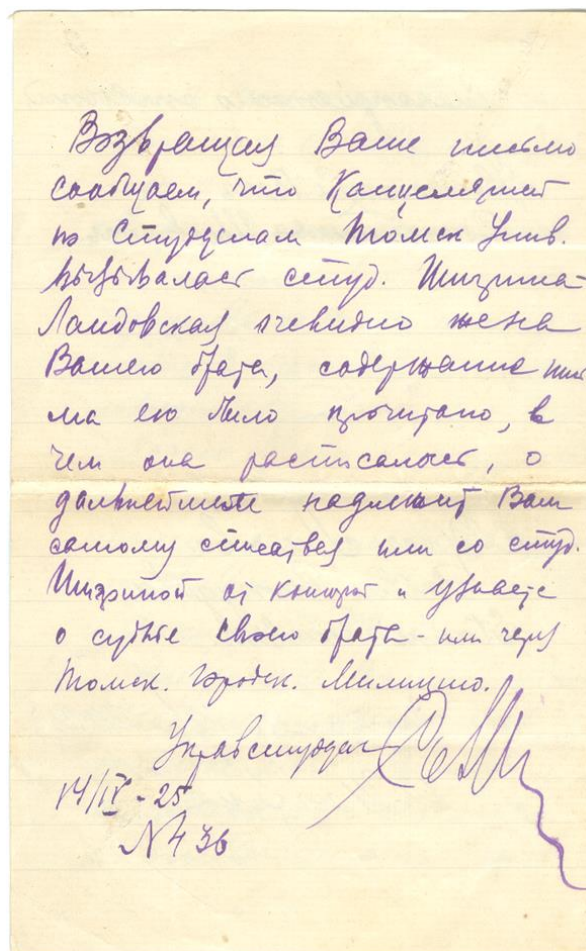 Возвращая Ваше письмо
сообщаем, что Канцелярией
по Студделам Томск Унив.
вызывалась студ. Шизрина-
Ландовская очевидно жена
Вашего брата, содержание пись
ма ею было прочитано, в
чем она расписалась, о
дальнейшем надлежит Вам
самому списаться или со студ.
от и узнаете
о судьбе своего брата - или через
Томск. Городск. Милицию.
Управстуддел
14/IV-25
№436